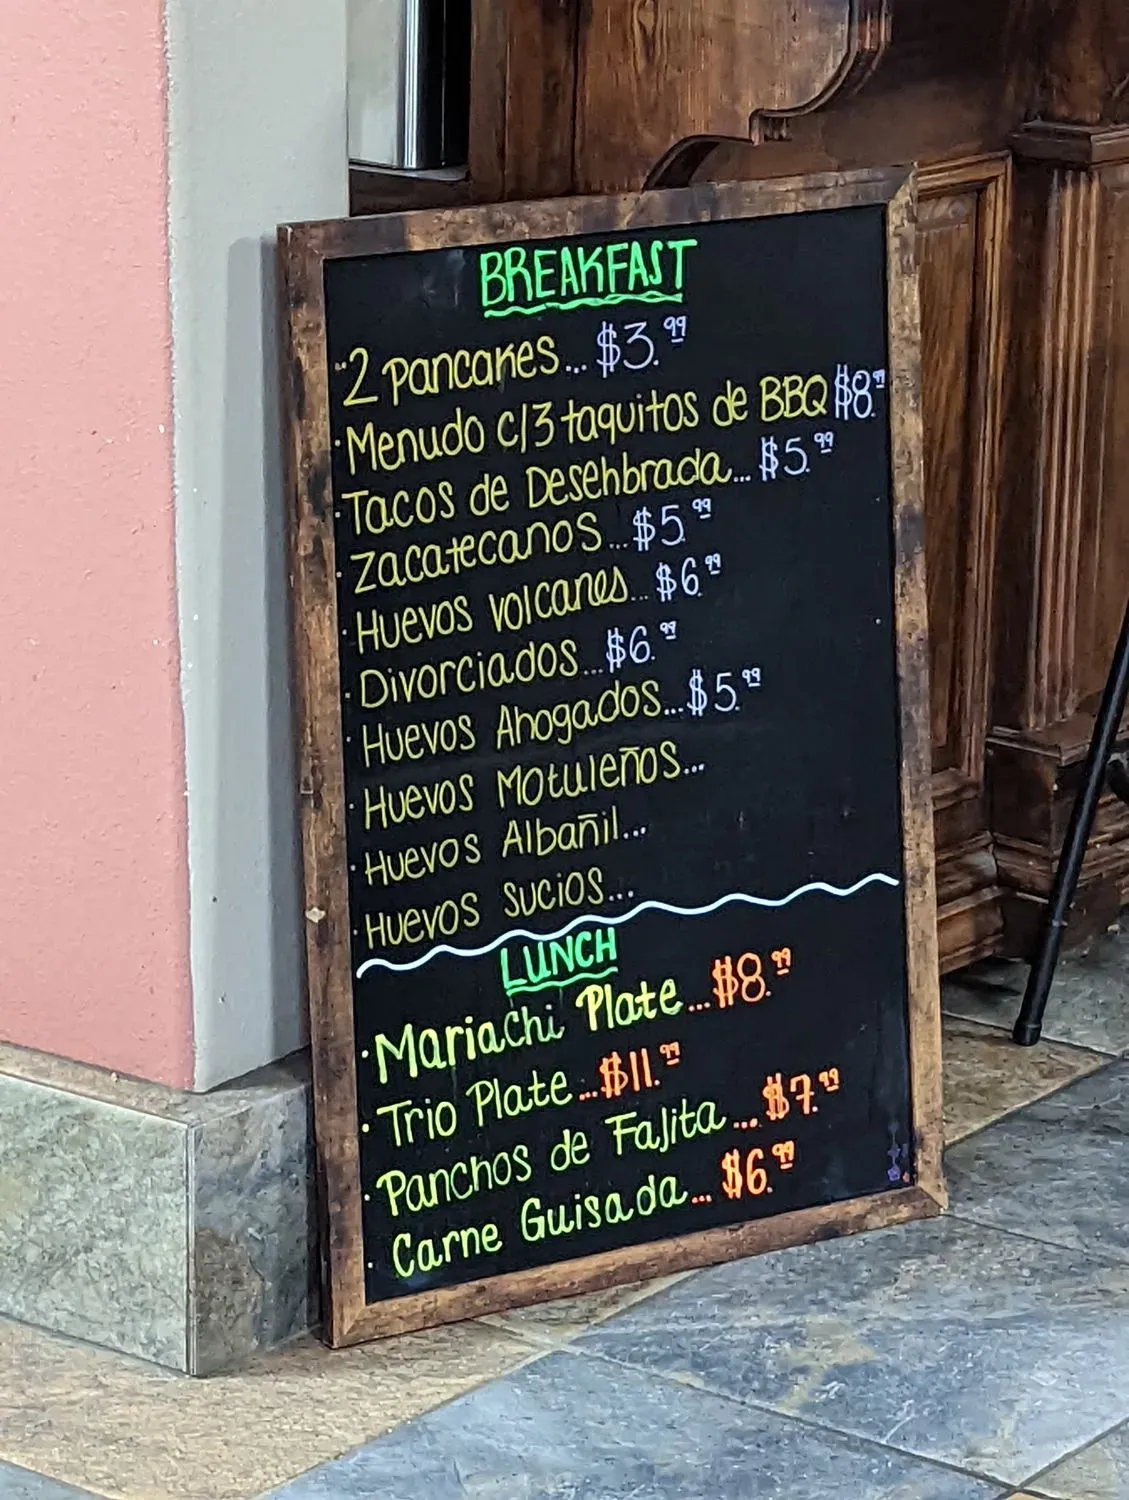 BREAKFAST
·2 Pancakes...$3.99
·Menudo c/3 taquitos de BBQ $8.99
·Tacos de Desehbrada...$5.99
·Zacatecanos...$5.99
·Huevos Volcanes...$6.99
·Divorciados...$6.99
·Huevos Ahogados...$5.99
·Huevos Motuleños...
·Huevos Albañil...
·Huevos Sucios...
LUNCH
·Mariachi Plate...$8.99
·Trio Plate...$11.99
·Panchos de Fajita...$7.99
·Carne Guisada...$6.99